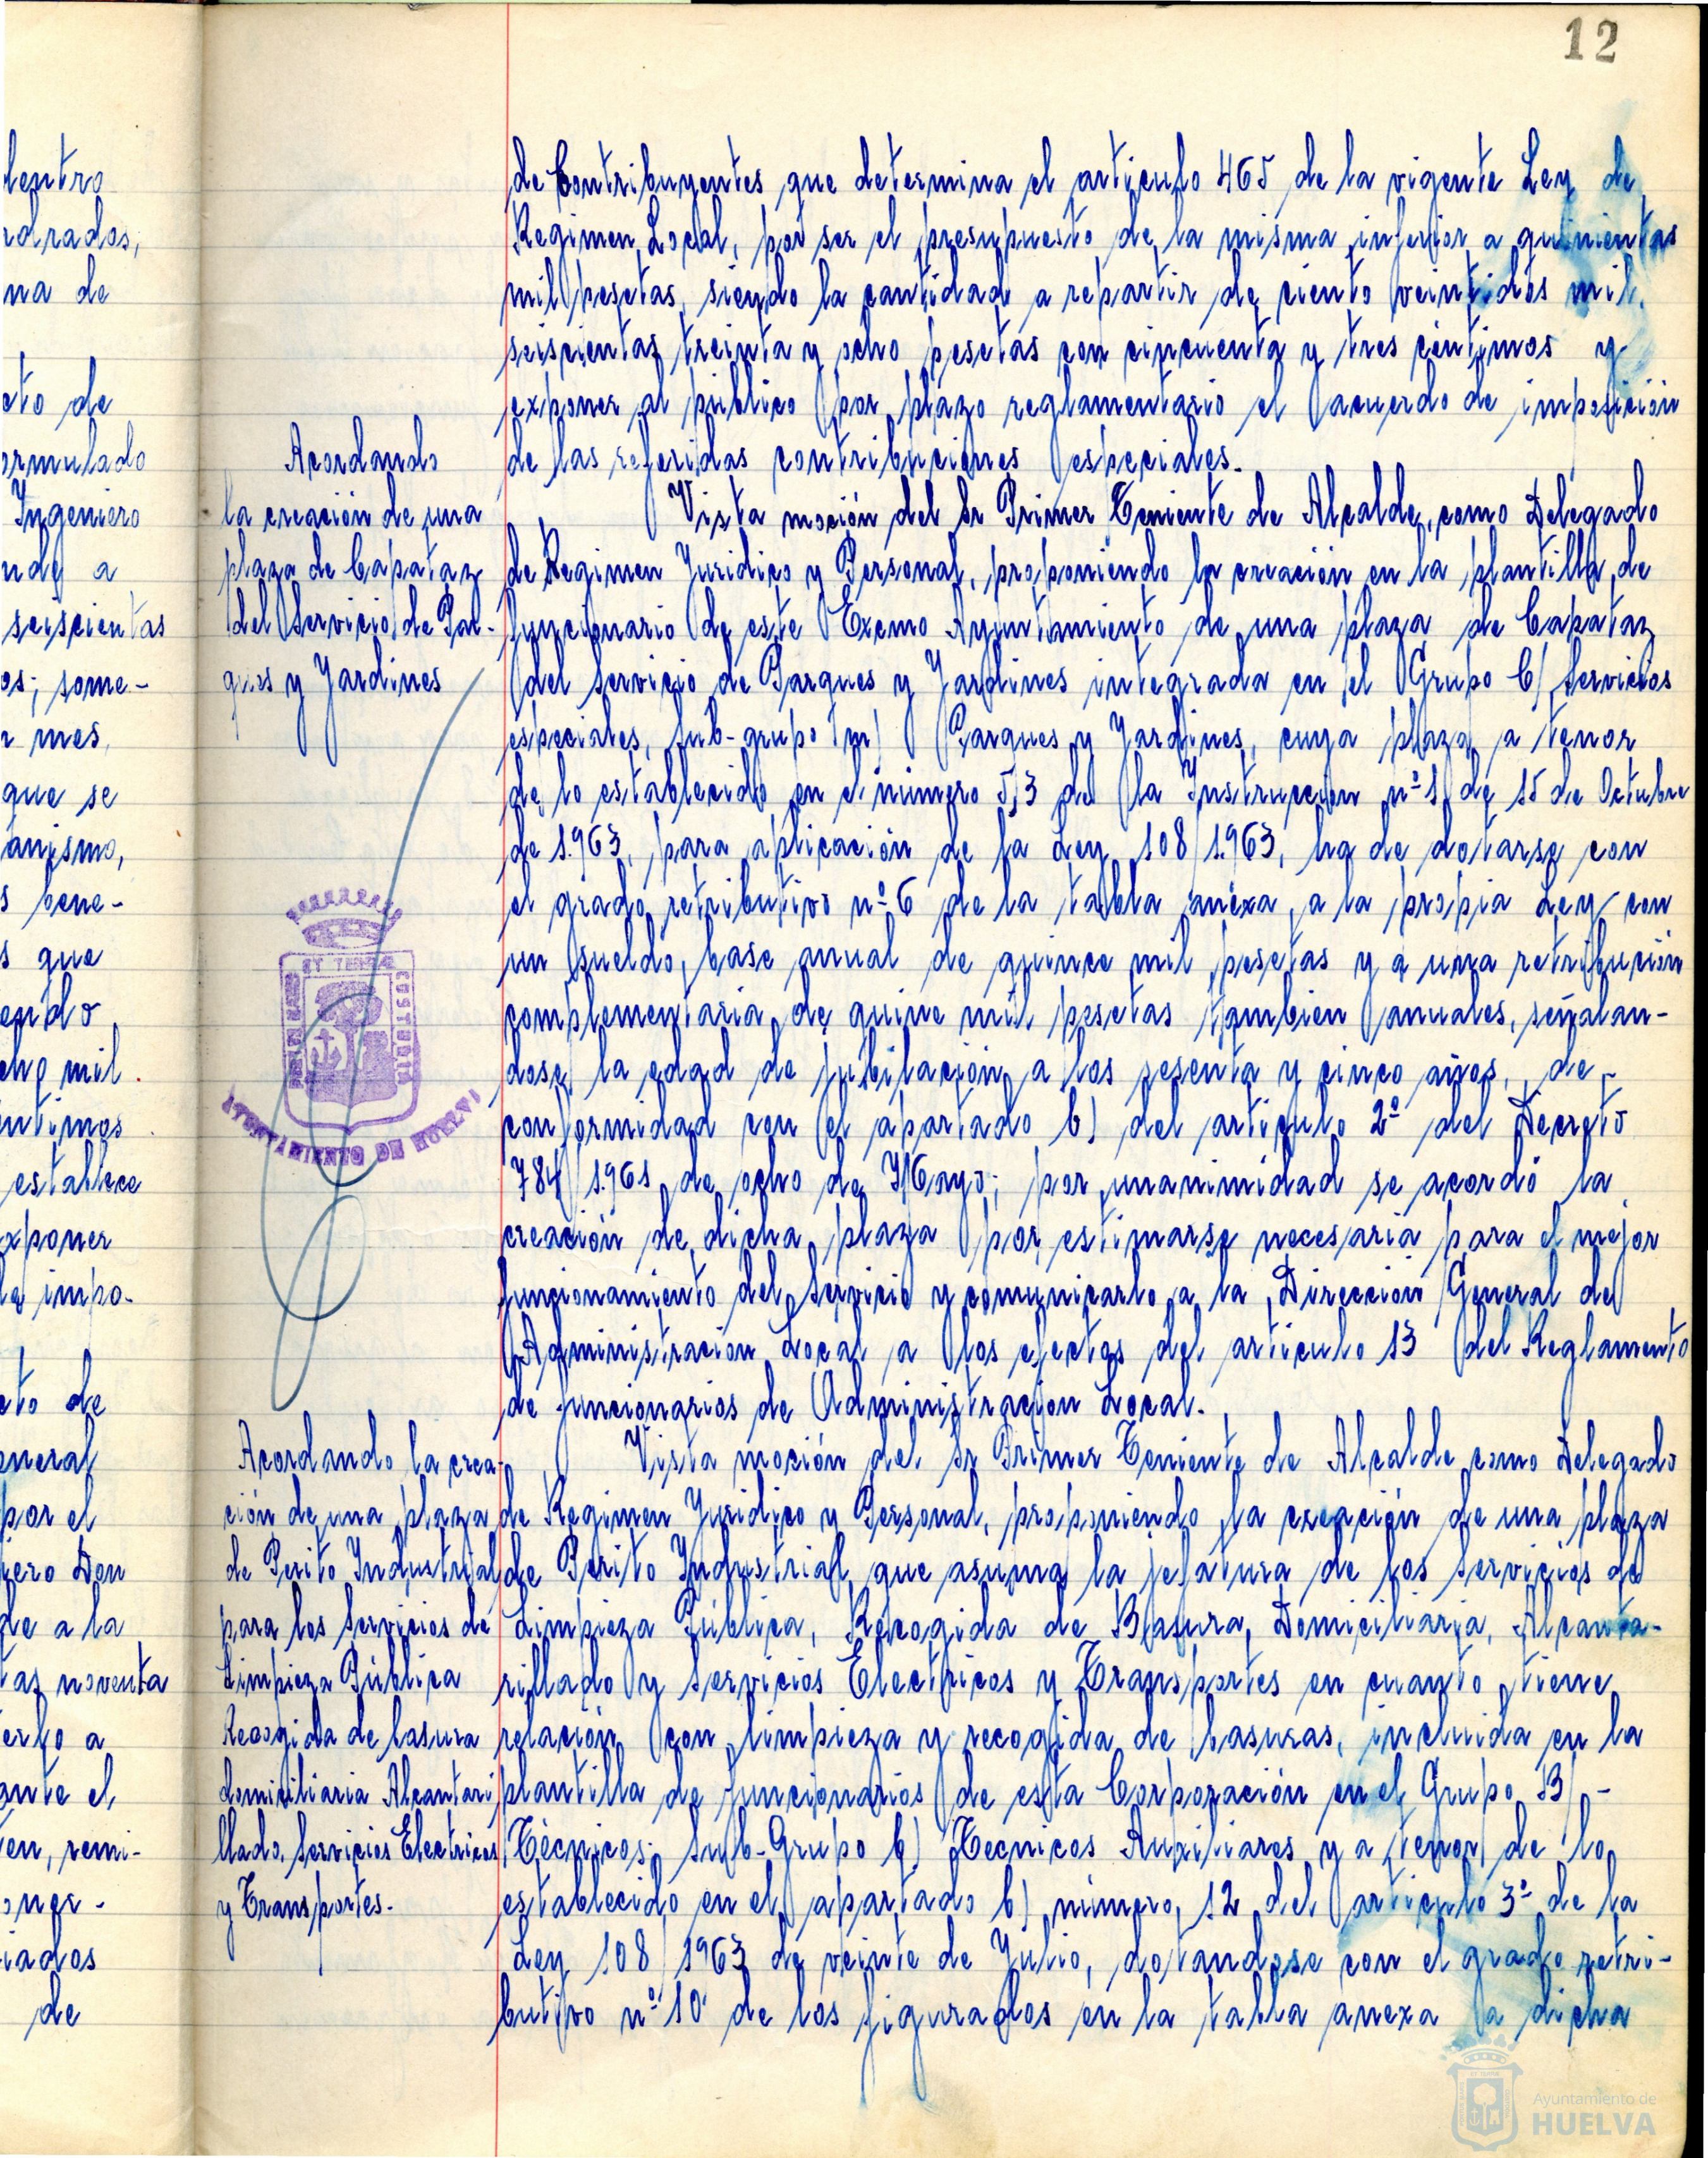 12
dentro
drados,
na de
cto de
ormulado
Ingeniero
nde a
seiscientas
os; some-
r mes,
que se
anismo,
s bene-
s que
endo
cho mil
ntimos
establece
xponer
la impo-
cto de
neral
por el
iero Don
de a la
tas noventa
erlo a
ante el
en, remi-
oner-
iados
de
Acordando
la creación de una
plaza de Capataz
del Servicio de Par-
ques y Jardines
Acordando la crea-
ción de una plaza
de Perito Industrial
para los Servicios de
Limpieza Pública
Recogida de basura
domiciliaria Alcantari
llado, Servicios Electricos
y Transportes.
de Contribuyentes que determina el articulo 465 de la vigente Ley de
Regimen Local, por ser el presupuesto de la misma inferior a quinientas
mil pesetas, siendo la cantidad a repartir de ciento veintidós mil
seiscientas treinta y ocho pesetas con cincuenta y tres céntimos y
exponer al público por plazo reglamentario el acuerdo de imposición
de las referidas contribuciones especiales.
Vista moción del Sr Primer Teniente de Alcalde, como Delegado
de Regimen Juridico y Personal, proponiendo la creación en la plantilla de
funcionario de este Excmo Ayuntamiento de una plaza de Capataz
del Servicio de Parques y Jardines integrada en el Grupo C) Servicios
especiales, Sub-grupo m) Parques y Jardines, cuya plaza a tenor
de lo establecido en el número 5,3 de la Instrucción nº 1 de 15 de Octubre
de 1.963, para aplicación de la Ley 108/1.963, ha de dotarse con
el grado retributivo nº 6 de la tabla anexa, a la propia Ley con
un sueldo, base anual de quince mil pesetas y a una retribución
complementaria de quine mil pesetas tambien anuales, señalan-
dose la edad de jubilación a los sesenta y cinco años, de-
conformidad con el apartado b) del artículo 2º del Decreto
784/1.961 de ocho de Mayo; por unanimidad se acordó la
creación de dicha plaza por estimarse necesaria para el mejor
funcionamiento del Servicio y comunicarlo a la Dirección General de
Administración Local a los efectos del articulo 13 del Reglamento
de funcionarios de Administración Local.
Vista moción del Sr Primer Teniente de Alcalde como Delegado
de Regimen Juridico y Personal, proponiendo la creación de una plaza
de Perito Industrial que asuma la jefatura de los servicios de
Limpieza Pública, Recogida de Basura, Domiciliaria, Alcanta-
rillado y Servicios Electricos y Transportes en cuanto tiene
relación con limpieza y recogida de basuras, incluida en la
plantilla de funcionarios de esta Corporación en el Grupo B) -
Técnicos; Sub-Grupo b) Tecnicos Auxiliares y a tenor de lo
establecido en el apartado b) número 12 del articulo 3º de la
Ley 108/1963 de veinte de Julio, dotandose con el grado retri-
butivo nº 10 de los figurados en la tabla anexa a dicha
AYUNTAMIENTO DE HUELVA
Ayuntamiento de
HUELVA